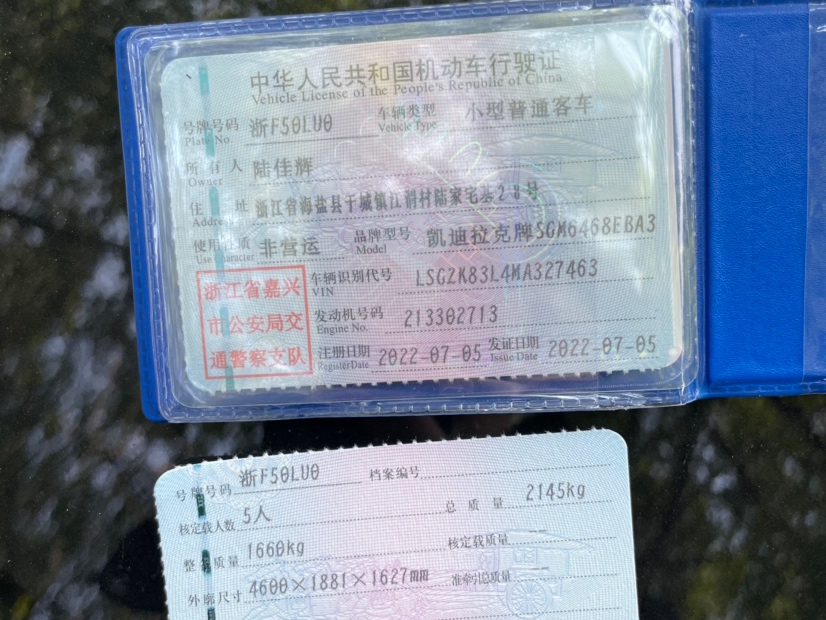 中华人民共和国机动车行驶证
Vehicle License of the People's Republic of China
号牌号码 Plate No. 浙F50LU0 车辆类型 Vehicle Type 小型普通客车
所有人 Owner 陆佳辉
住址 Address 浙江省海盐县于城镇江渭村陆家宅基28号
使用性质 Use Character 非营运 品牌型号 Model 凯迪拉克牌SGM6468EBA3
浙江省嘉兴
市公安局交
通警察支队
车辆识别代号 VIN LSGZK83L4MA327463
发动机号码 Engine No. 213302713
注册日期 Register Date 2022-07-05 发证日期 Issue Date 2022-07-05
号牌号码 浙F50LU0 档案编号
核定载人数 5人 总质量 2145kg
整备质量 1660kg 核定载质量 --
外廓尺寸 4600×1881×1627mm 准牵引总质量 --